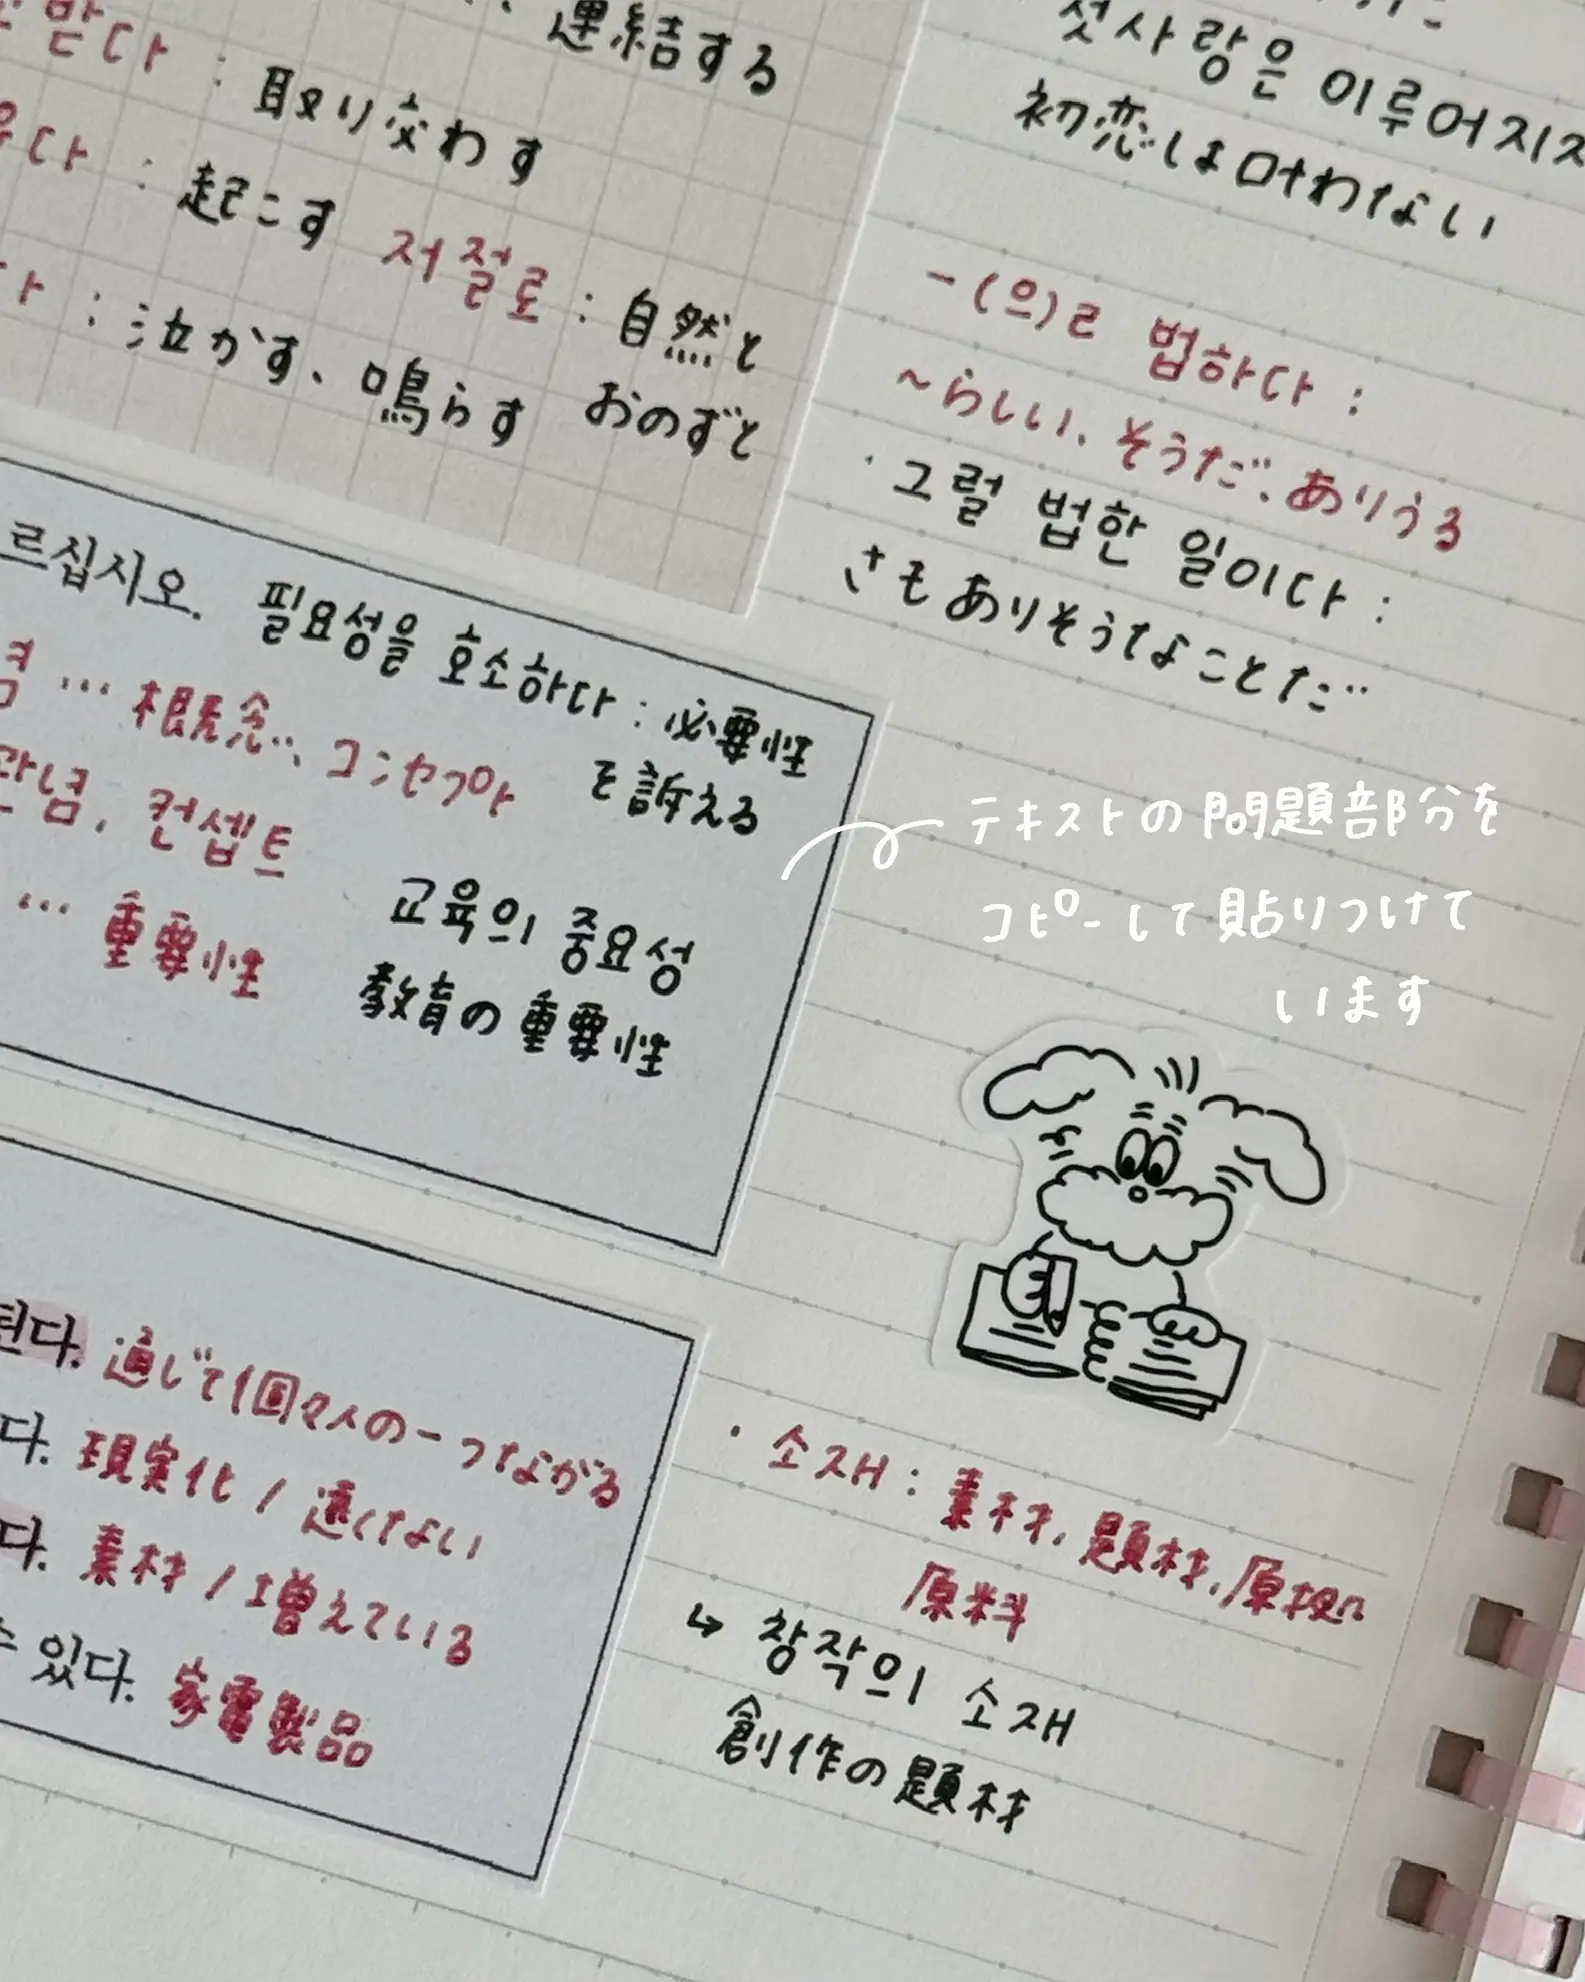 連結する
받다 : 取り交わす
우다 : 起こす
저절로 : 自然と
おのずと
다 : 泣かす、鳴らす
첫사랑은 이루어지지
初恋は叶わない
-(으)ㄹ 법하다 :
~らしい、そうだ、ありうる
· 그럴 법한 일이다 :
さもありそうなことだ
르십시오. 필요성을 호소하다 : 必要性
を訴える
념 … 概念、コンセプト
관념, 컨셉트
… 重要性
교육의 중요성
教育の重要性
テキストの問題部分を
コピーして貼りつけて
います
된다. 通じて個々人の-つながる
다. 現実化 / 遠くない
다. 素材 / 増えている
수 있다. 家電製品
· 소재 : 素材, 題材, 原拠
原料
↳ 창작의 소재
創作の題材